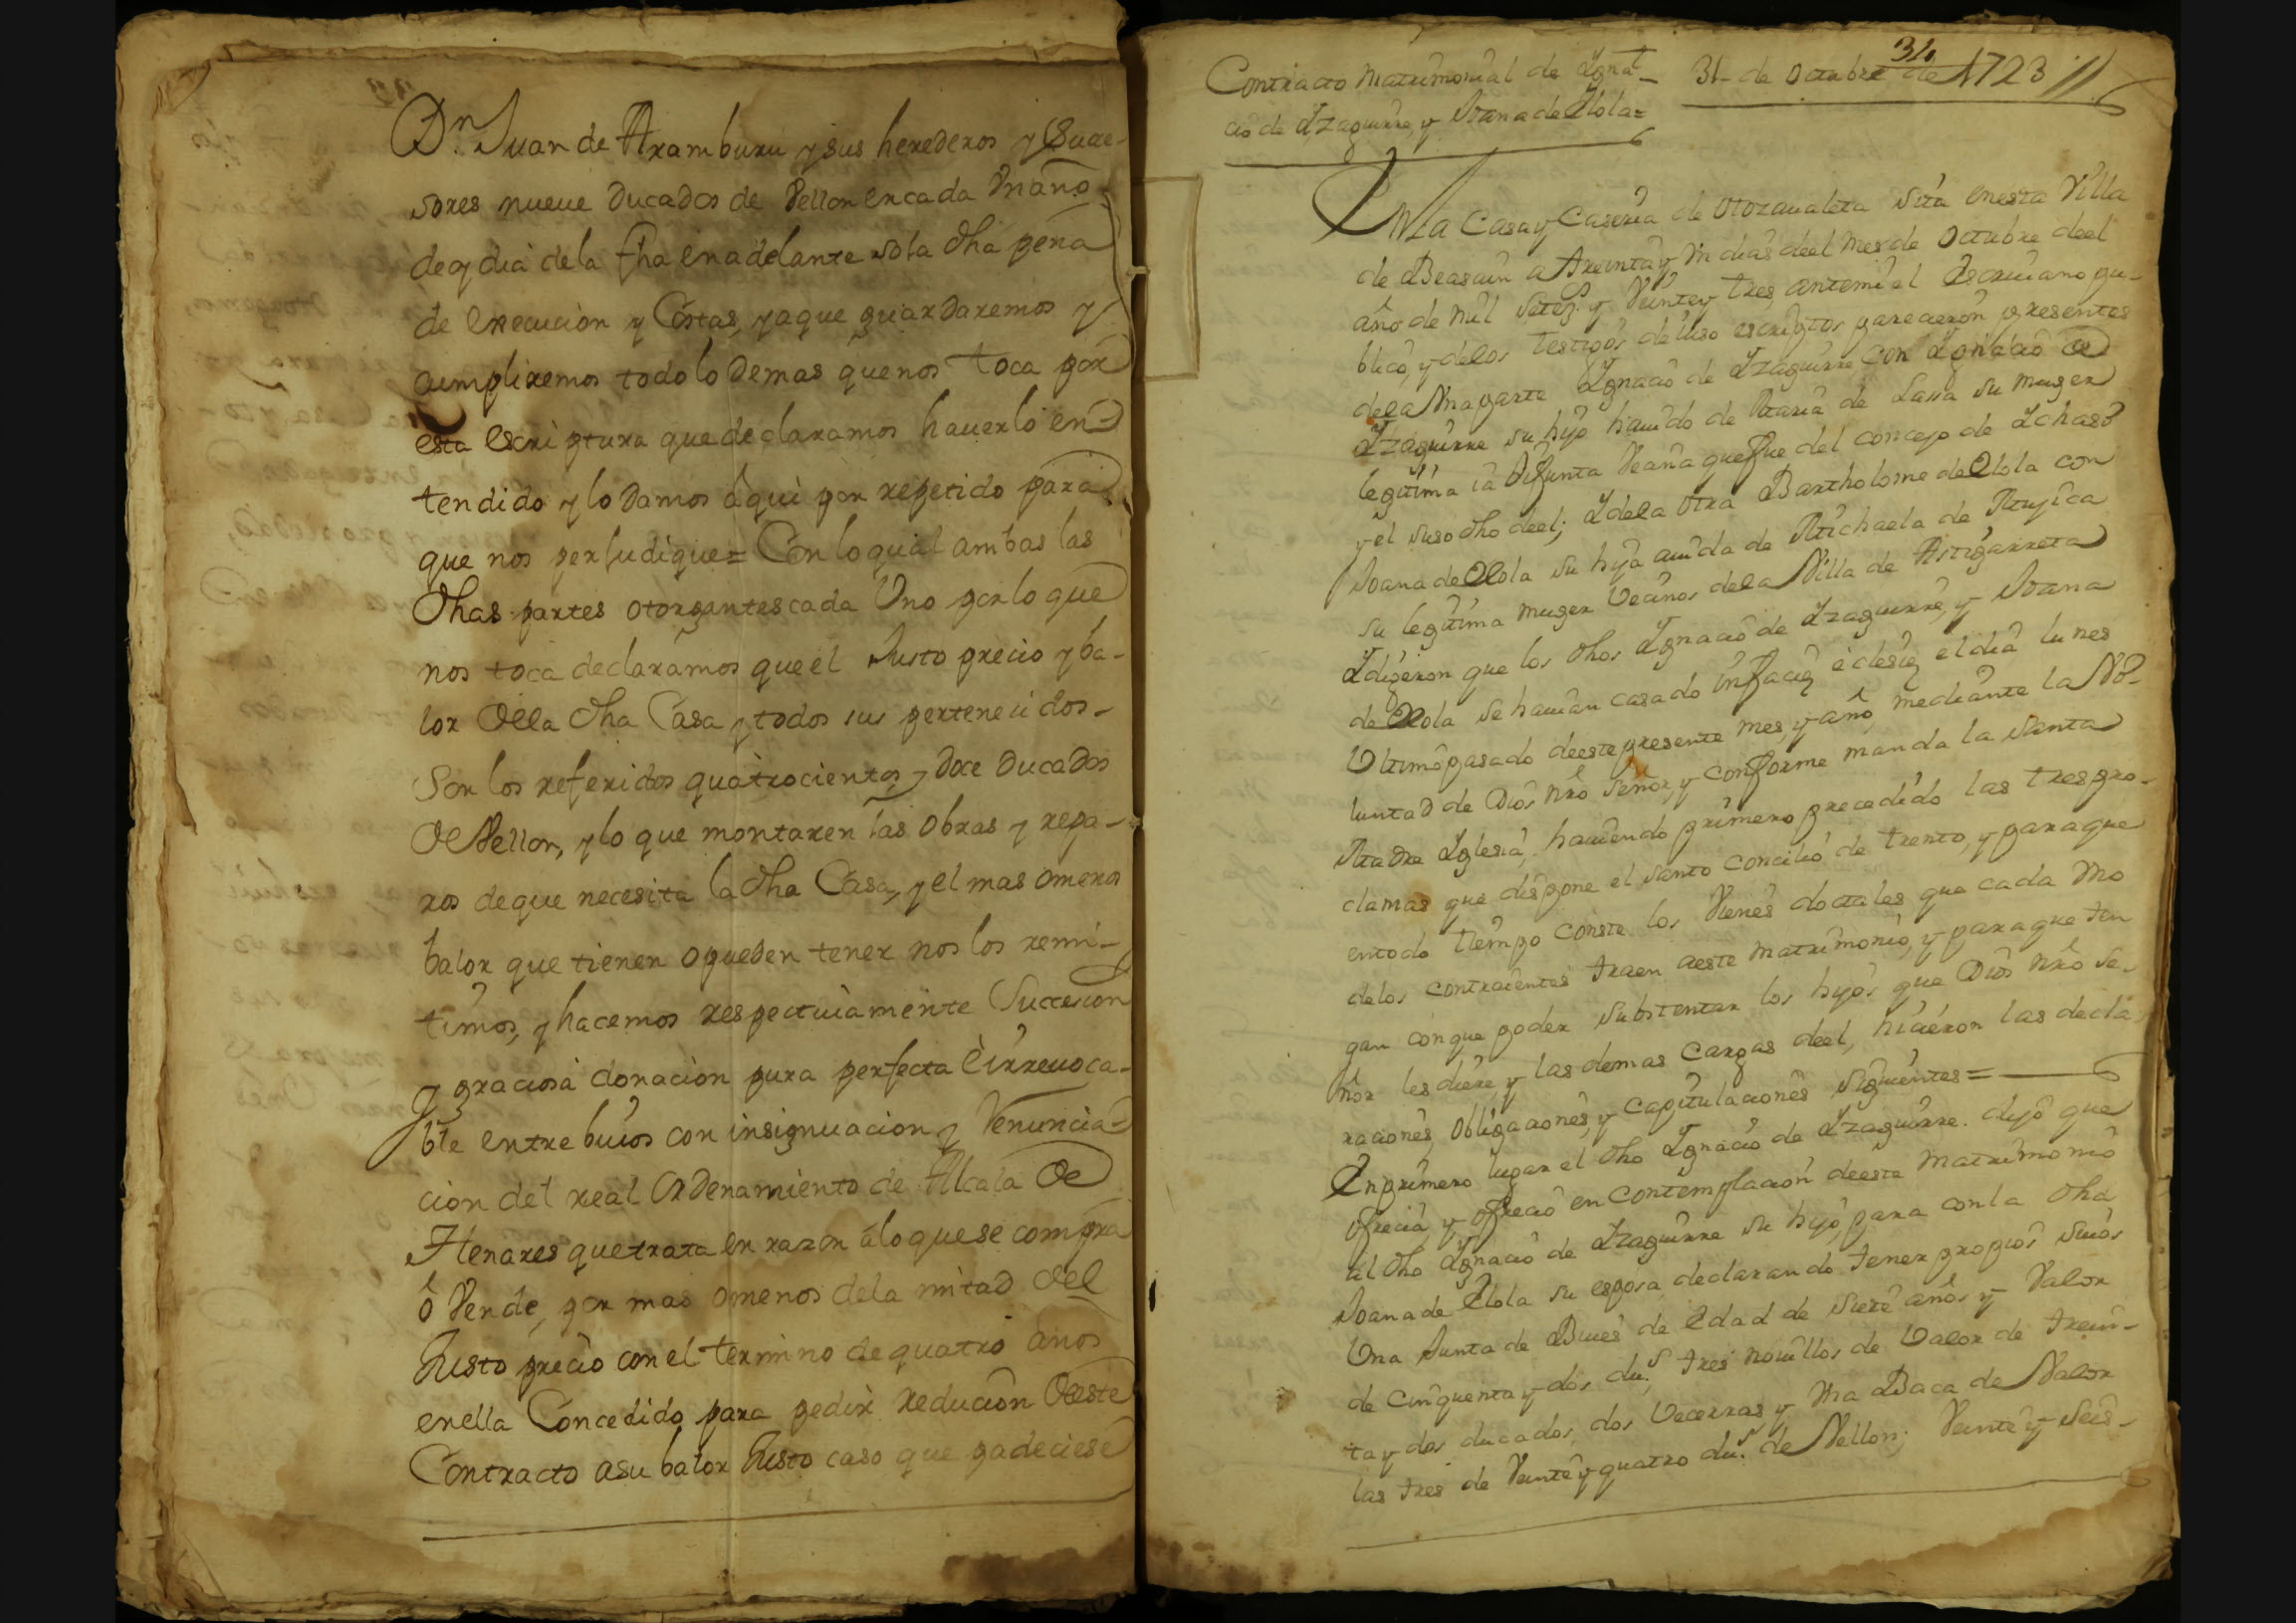 Dn. Juan de Aramburu y sus herederos y Suce-
sores nueue Ducados de Vellon encada Vn año
de oy dia de la fha en adelante sola dha pena
de execucion y Costas, y a que guardaremos y
cumpliremos todo lo demas que nos toca por
esta escriptura que declaramos hauerlo en-
tendido y lo damos aqui por repetido para
que nos perJudique= Con lo qual ambas las
dhas partes otorgantes cada Vno por lo que
nos toca declaramos que el Justo precio y ba-
lor de la dha Casa y todos sus pertenecidos-
Son los referidos quatrocientos y doce Ducados
de Vellon, y lo que montaren las obras y repa-
ros de que necesita la dha Casa, y el mas o menos
balor que tienen o pueden tener nos los remi-
timos, y hacemos respectuiamente Succesion
y graciosa donacion pura perfecta è irreuoca-
ble entre buios con insignuacion y Renuncia-
cion del real Ordenamiento de Alcala de
Henares que trata en razon álo que se compra
ô Vende, por mas o menos dela mitad del
Justo precio con el termino de quatro años
en ella Concedido para pedir reducion de este
Contracto a su balor Justo caso que padeciese
34
Contracto Matrimonial de Ignat-
cio de Yzaguirre, y Joana de Olola=
31- de Octubre de 1723 //
En La Casa y Caseria de Otozaualeta Sita en esta Villa
de Beasain a treinta y Vn dias deel mes de Octubre deel
año de mil Setezs. y Veinte y tres, ante mi el escriuano pu-
blico, y de los testigos de iuso escriptos parecieron presentes
de la Vna parte Ygnacio de Yzaguirre con Ygnacio de
Yzaguirre su hijo hauido de Maria de Lasa su muger
legitima ia difunta Veçina que fue del concejo de Ychaso
y el suso dho deel; Y de la otra Bartholome de Olola con
Joana de Olola su hija auida de Michaela de Mujica
su legitima muger Vecinos de la Villa de Astigarreta
Y digeron que los dhos Ygnacio de Yzaguirre, y Joana
de Olola se hauian casado in façie eclesie el dia lunes
Vltimo pasado de este presente mes, y año, mediante la Vo-
luntad de Dios nro Señor, y conforme manda la Santa
Madre Yglesia, hauiendo primero precedido las tres pro-
clamas que dispone el Santo concilio de trento, y para que
en todo tiempo conste los Vienes doctales que cada Vno
de los contraientes traen a este matrimonio, y para que ten
gan con que poder substentar los hijos que Dios nro Se-
ñor les diere, y las demas cargas deel, hicieron las decla
raciones, obligaciones, y capitulaciones siguientes=
En primero lugar el dho Ygnacio de Yzaguirre. dijo que
ofrecia, y ofrecio en contemplacion de este matrimonio
al dho Ygnacio de Yzaguirre su hijo, para con la dha
Joana de Olola su esposa declarando tener propios suios
Vna Junta de Buies de edad de siete años y Valor
de cinquenta y dos dus. tres nouillos de Valor de trein-
ta y dos ducados, dos Vecerras, y Vna Baca de Valor
las tres de Veinte y quatro dus. de Vellon; Veinte y Seis-